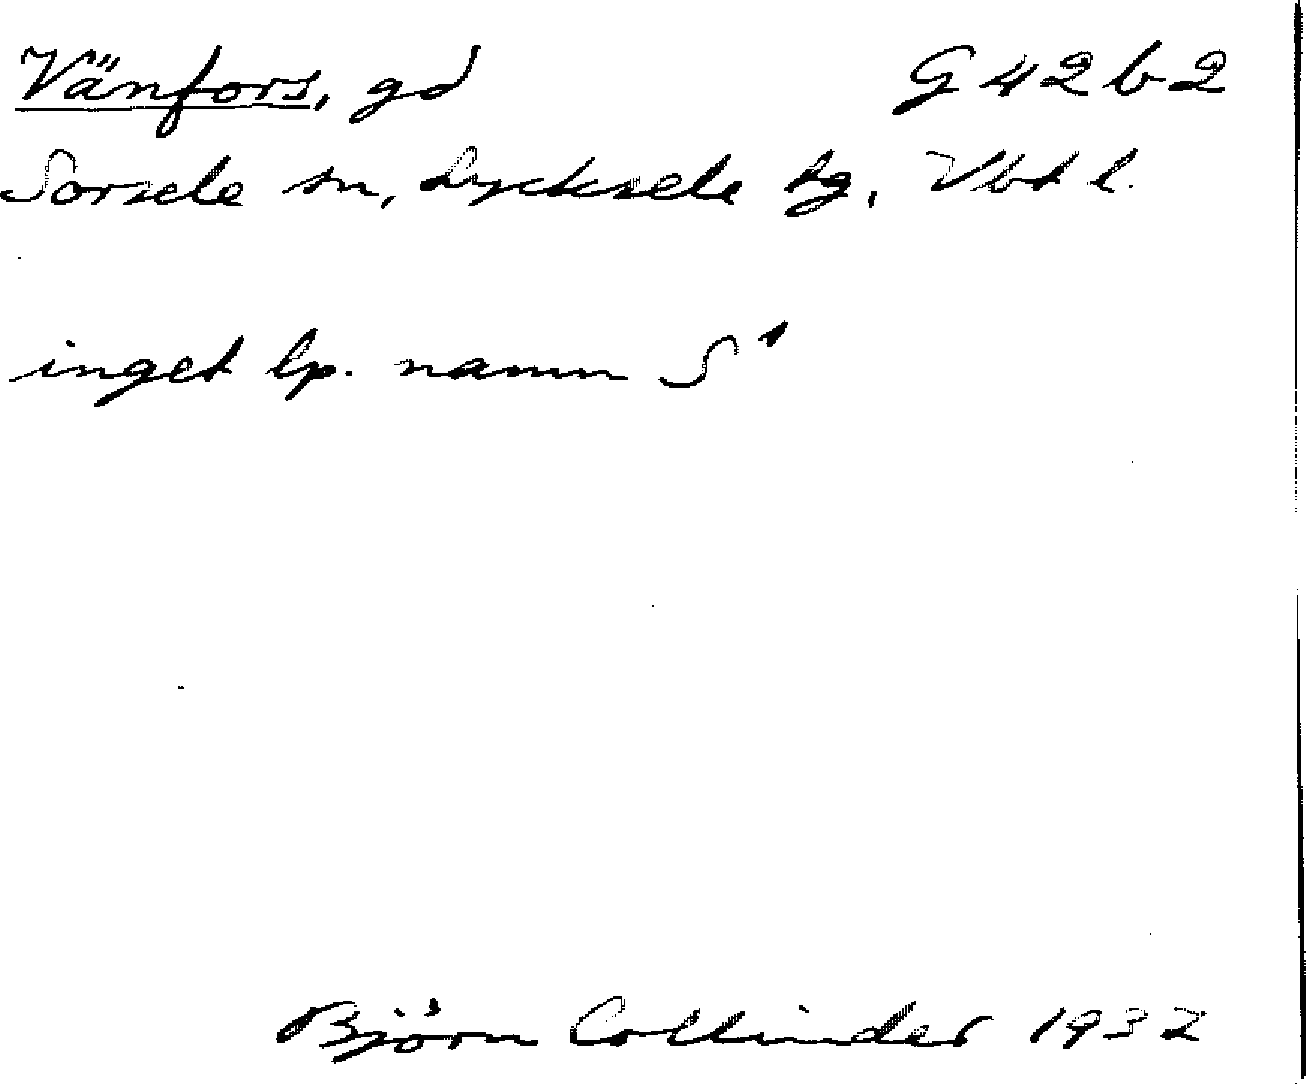 Vänfors, gd G42b2
Sorsele sn, Lycksele tg, Vbt l.
inget lp. namn S¹
Björn Collinder 1932